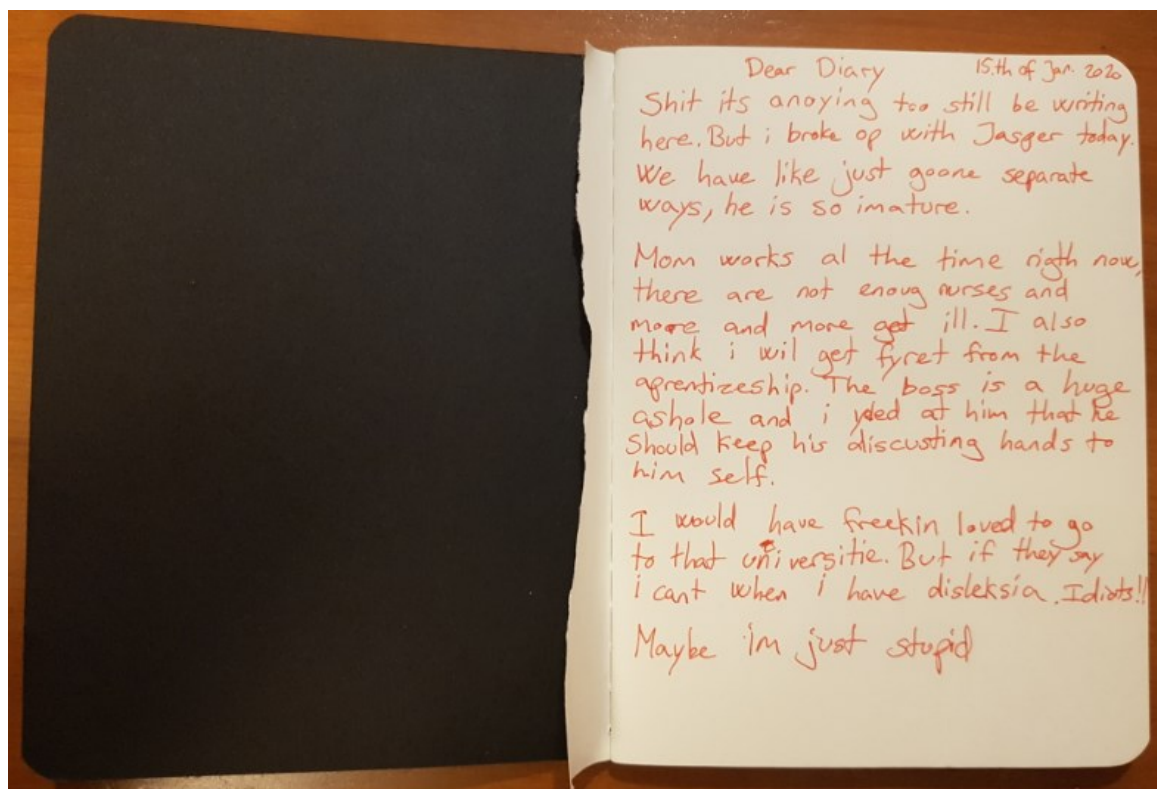 Dear Diary 15.th of Jan. 2020
Shit its anoying too still be writing
here. But i broke op with Jasper today.
We have like just goone separate
ways, he is so imature.
Mom works al the time rigth now,
there are not enoug nurses and
more and more get ill. I also
think i wil get fyret from the
aprentizeship. The boss is a huge
ashole and i at him that he
Should keep his discusting hands to
him self.
I would have freekin loved to go
to that universitie. But if they say
i cant when i have disleksia. Idiots!!
Maybe im just stupid